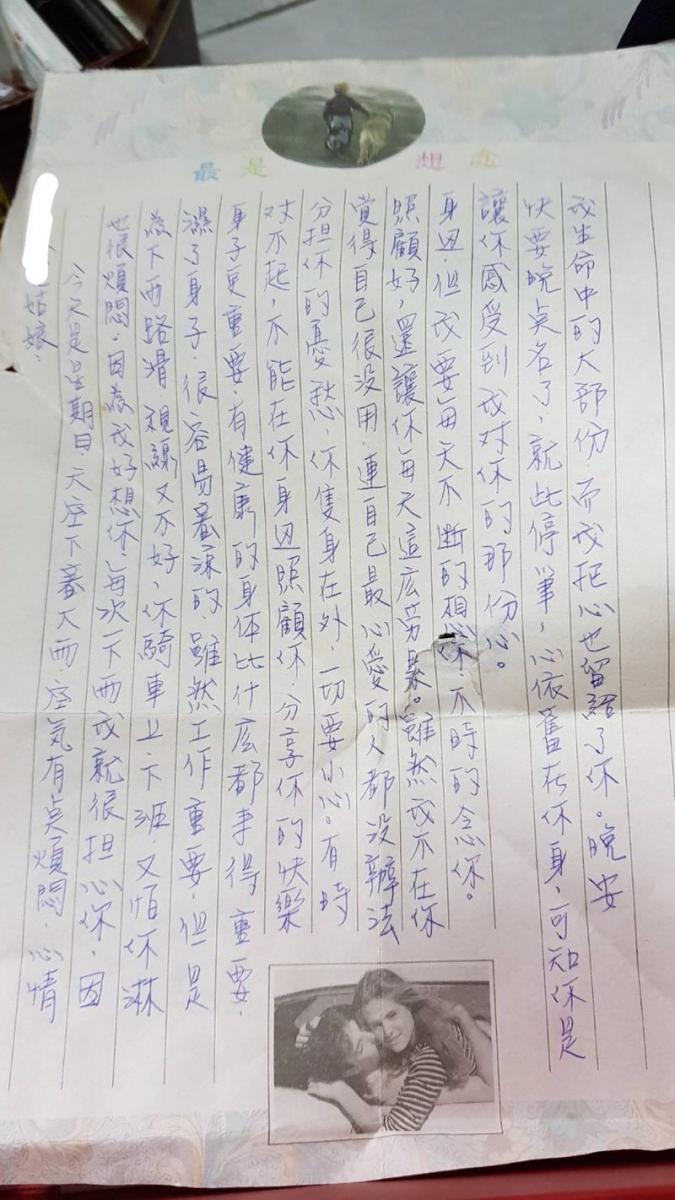 最是 想念
姑娘.
今天是星期日 天空下著大雨,空氣有点煩悶,心情
也很煩悶,因為我好想你,每次一下雨我就很担心你,因
為下雨路滑,視線又不好,你騎車上下班,又怕你淋
濕了身子,很容易著涼的,雖然工作重要,但是
身子更重要,有健康的身体比什庅都事得重要,
对不起,不能在你身边照顧你,分享你的快樂
分担你的憂愁,你隻身在外,一切要小心。有時
覺得自己很没用,連自己最心愛的人都没辦法
照顧好,還讓你每天這庅勞累。雖然我不在你
身边,但我要每天不断的想你,不時的念你。
讓你感受到我对你的那份心。
快要晚点名了,就此停筆,心依舊在你身,可知你是
我生命中的大部份,而我把心也留給了你。晚安